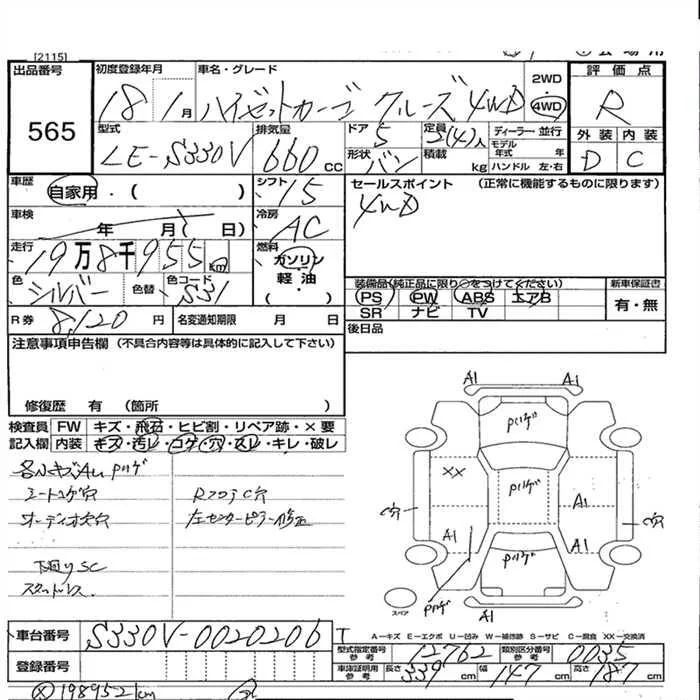 [2115]
出品番号 565
初度登録年月 18 1月
車名・グレード ハイゼットカーゴ クルーズ 4WD
2WD 4WD
評価点 R
外装 内装
D C
型式 LE-S330V
排気量 660 cc
ドア 5
定員 2(4)人
ディーラー・並行
モデル年式 年
形状 バン
積載 kg
ハンドル 左・右
車歴 自家用・( )
シフト 15
セールスポイント (正常に機能するものに限ります)
4WD
車検 年 月( 日)
冷房 AC
走行 19万8千955 km
燃料 ガソリン 軽油 ( ・ )
色 シルバー 色替 色コード S31
装備品(純正品に限り○をつけてください) 新車保証書
PS PW ABS エアB 有・無
SR ナビ TV
R券 8,120 円 名変通知期限 月 日
後日品
注意事項申告欄 (不具合内容等は具体的に記入して下さい)
修復歴 有 (箇所 )
検査員 FW キズ・飛石・ヒビ割・リペア跡・×要
記入欄 内装 キズ・汚レ・コゲ・穴・スレ・キレ・破レ
各小キズAU Pハゲ
シートコゲ穴
Rフロアコ穴
オーディオ穴
左センターピラー修正
下廻りSC
スタッドレス
A1 A1
Pハゲ
XX
Pハゲ
A1
穴
A1
穴
A1
A1
Pハゲ
Pハゲ
A1
スペア
車台番号 S330V-0020206
T A-キズ E-エクボ U-凹み W-補修跡 S-サビ C-腐食 XX-交換済
型式指定番号参考 12762 類別区分番号参考 0035
登録番号
車庫証明用参考 長さ 339 cm 幅 147 cm 高さ 187 cm
198952km